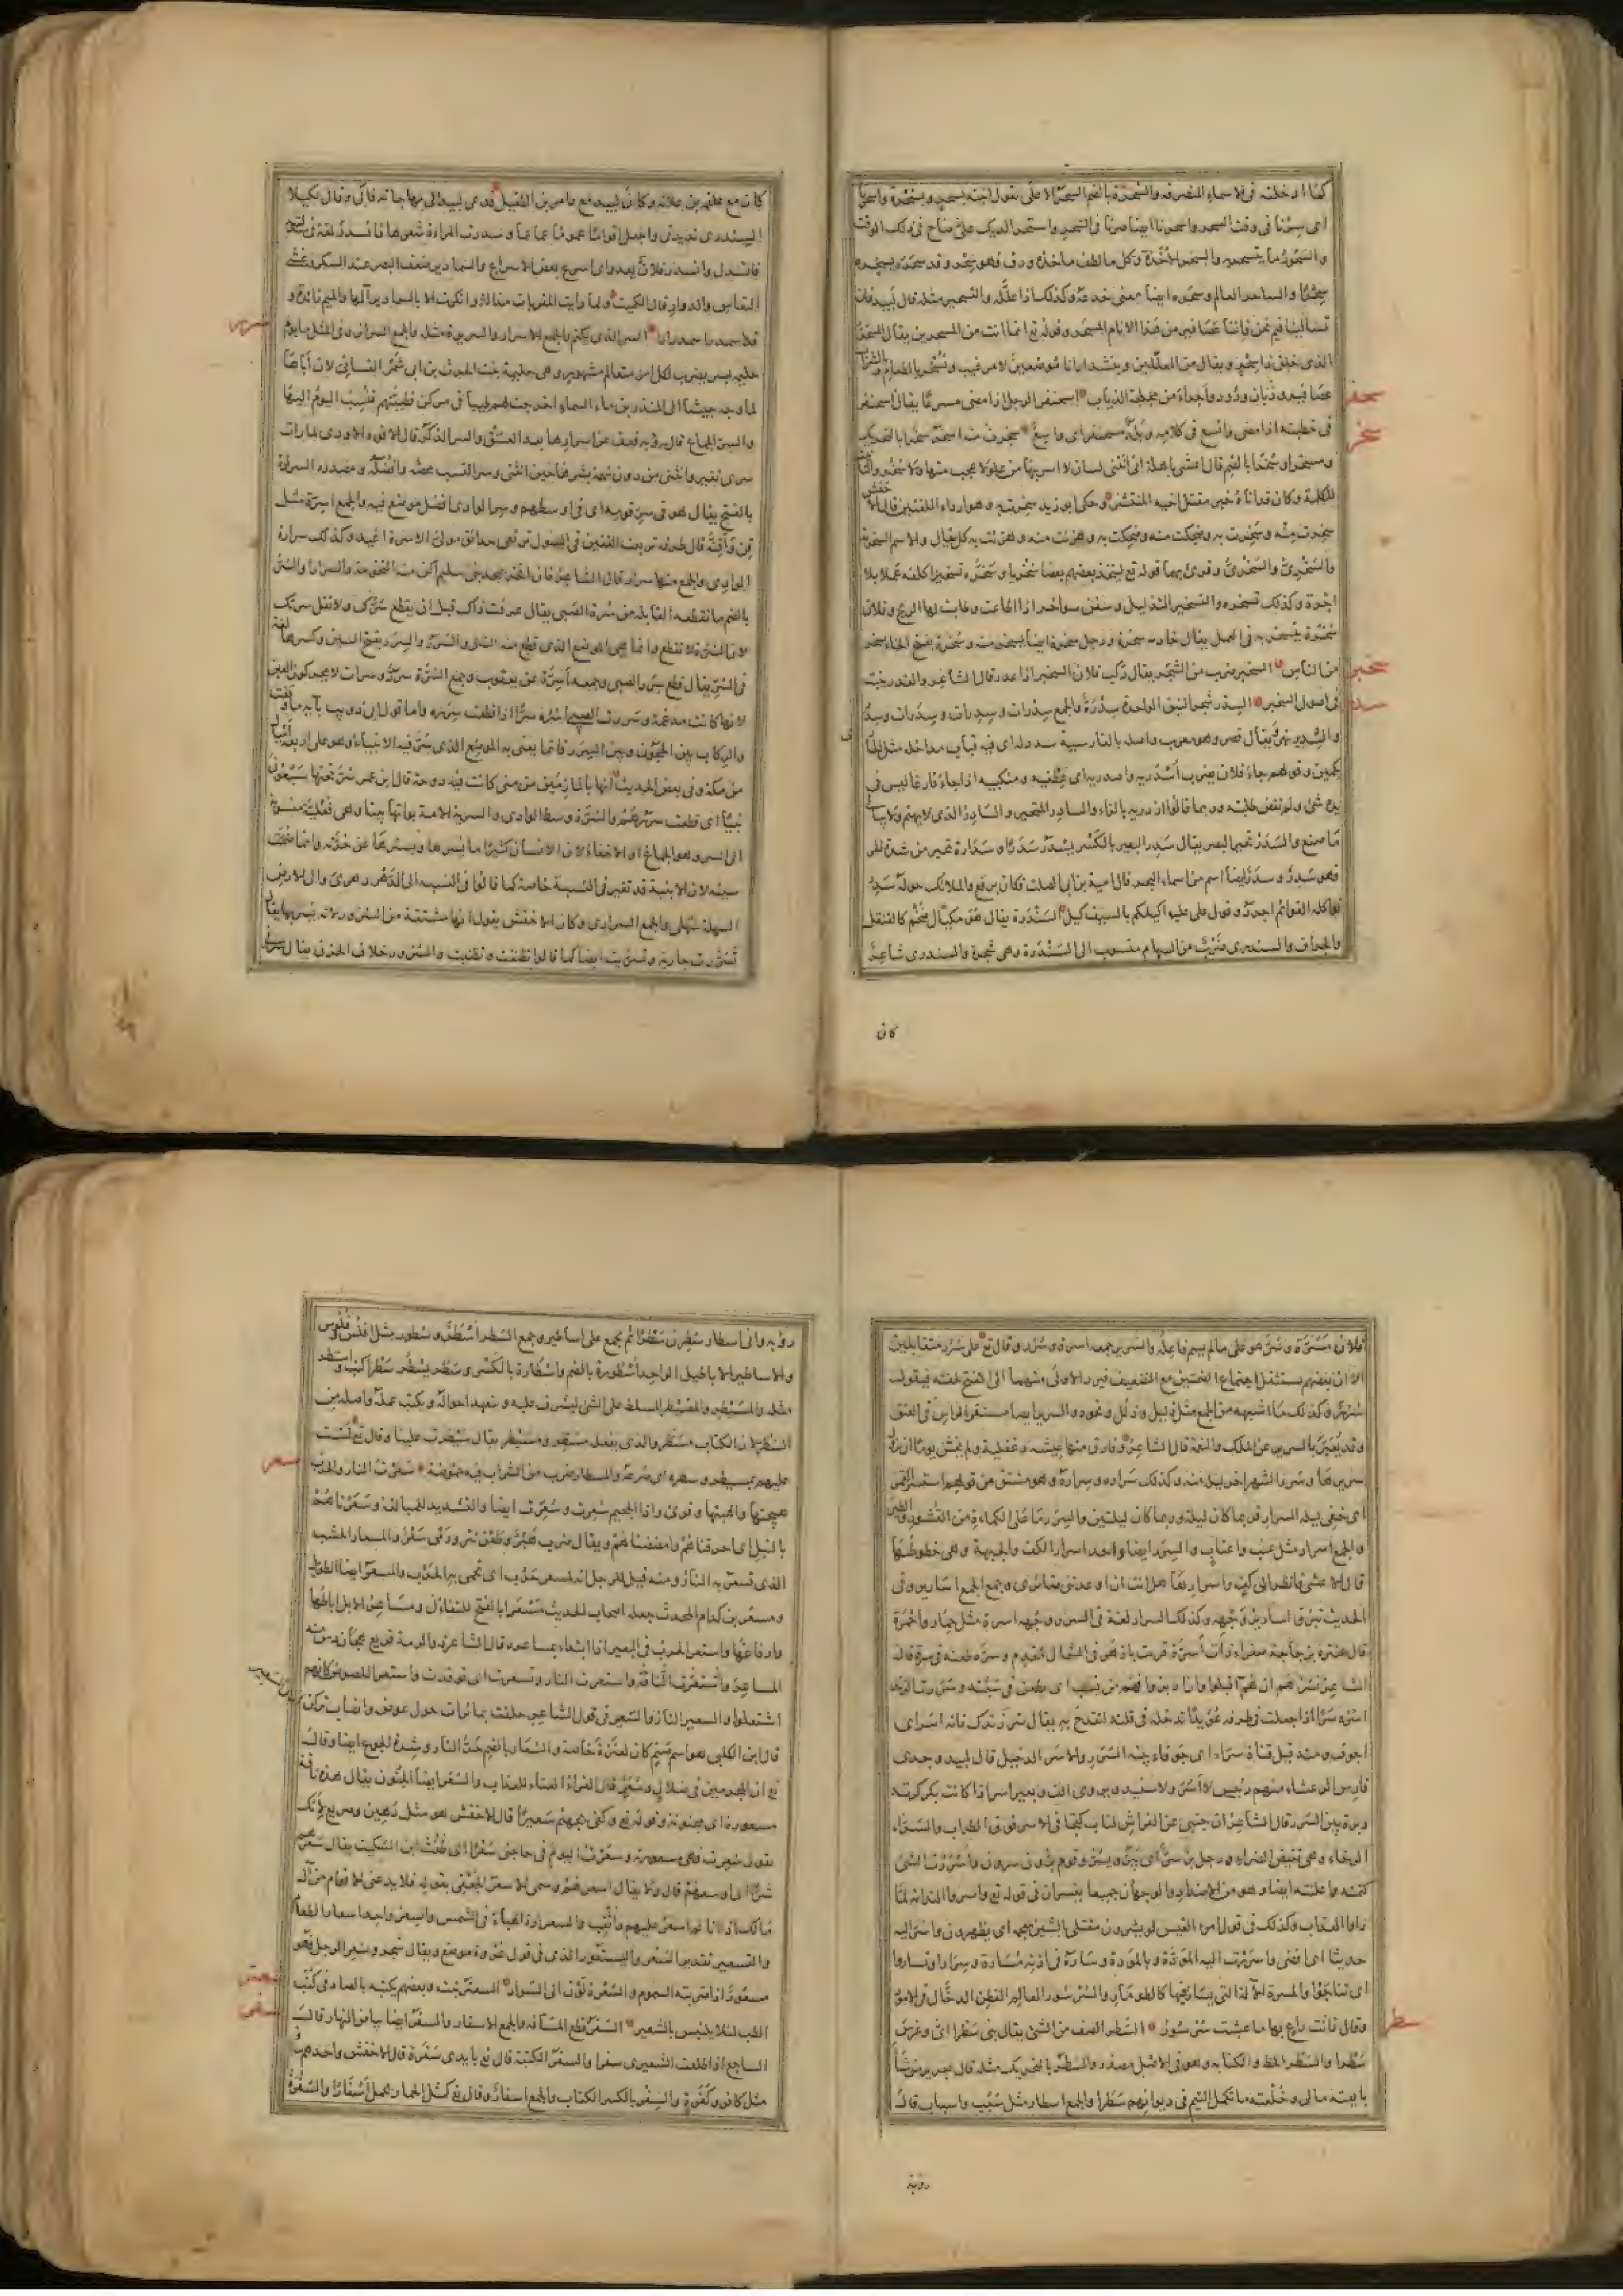 كما ادخلته فى الاسماء المنصرفه والسحرة بالضم السحر الاعلى يقول اتيته بسحر وبسحرة واسحرنا
اى سرنا فى وقت السحر واسحرنا ايضا صرنا فى السحر واستحر الديك صاح فى ذلك الوقت
والسحور ما يتسحر به والسحر الاخذة وكل ما لطف ماخذه ودق فهو سحر وقد سحره يسحره
سحرا والساحر العالم وسحره ايضا بمعنى خدعه وكذلك اذا علله والتسحير مثله قال لبيد فان
تسألينا فيم نحن فاننا عصافير من هذا الانام المسحر وقوله تع انما انت من المسحرين يقال المسحر
الذى خلق ذا سحر ويقال من المعللين وينشد ارانا موضعين لامر غيب ونسحر بالطعام وبالشراب
عصافير وذبان ودود واجرأ من مجلحة الذياب اسحنفر الرجل اذا مضى مسرعا يقال اسحنفر
سحفر
فى خطبته اذا مضى واتسع فى كلامه وبلد مسحنفر اى واسع سخرت منه اسخر سخرا بالتحريك
سخر
ومسخرا وسخرا بالضم قال اعشى باهلة انى اتتنى لسان لا اسر بها من علو لا عجب منها ولا سخر والتانيث
للكلمة وكان قد اتاه خبر مقتل اخيه المنتشر وحكى ابو زيد سخرت به وهو اردأ اللغتين قال الاخفش
سخرت منه وسخرت به وضحكت منه وضحكت به وهزئت منه وهزئت به كل يقال والاسم السخرية
والسخرى والسخرى وقرئ بهما قوله تع ليتخذ بعضهم بعضا سخريا وسخره تسخيرا كلفه عملا بلا
اجرة وكذلك تسخره والتسخير التذليل وسفن سواخر اذا اطاعت وطابت لها الريح وفلان
سخرة يتسخر به فى العمل يقال خادم سخرة ورجل سخرة ايضا يسخر منه وسخرة بفتح الخاء يسخر
من الناس السخبر ضرب من الشجر يقال ركب فلان السخبر اذا غدر قال الشاعر والغدر ينبت
سخبر
فى اصول السخبر السدر شجر النبق الواحدة سدرة والجمع سدرات وسدرات وسدرات وسدر
سدر
والسدير نهر ويقال قصر وهو معرب واصله بالفارسية سه دله اى فيه قباب مداخلة مثل الحارى
بكمين وقولهم جاء فلان يضرب اسدريه واصدريه اى عطفيه ومنكبيه اذا جاء فارغا ليس فى
يده شئ ولم يقض طلبته وربما قالوا ازدريه بالزاء والسادر المتحير والسادر الذى لا يهتم ولا يبالى
ما صنع والسدر تحير البصر يقال سدر البعير بالكسر يسدر سدرا وسدارة تحير من شدة الحر
فهو سدر وسدر ايضا اسم من اسماء البحر قال امية بن ابى الصلت فكان برقع والملائك حوله سدر
تواكله القوائم اجرد وقول على عليه اكيلكم بالسيف كيل السندرة يقال هو مكيال ضخم كالقنقل
والجراف والسندرى ضرب من السهام منسوب الى السندرة وهى شجرة والسندرى شاعر
كان
كان مع علقمة بن علاثة وكان لبيد مع عامر بن الطفيل فدعى لبيد الى مهاجاته فابى وقال لكيلا
السندرى نديدتى واجعل اقواما عموما عماعما وسدرت المرأة شعرها فانسدر لغة فى سدلته
فانسدل وانسدر فلان يعدو اى اسرع بعض الاسراع والسمادير ضعف البصر عند السكر وغشى
النعاس والدوار قال الكميت ولما رايت المقربات مذالة وانكرت الا بالسمادير آلها والميم زائدة و
قد اسمدر اسمدرارا السر الذى يكتم والجمع الاسرار والسريرة مثله والجمع السرائر وفى المثل ما يوم
سرر
حليمة بسر يضرب لكل امر متعالم مشهور وهى حليمة بنت الحرث بن ابى شمر الغسانى لان اباها
لما وجه جيشا الى المنذر بن ماء السماء اخرجت لهم طيبا فى مركن فطيبتهم فنسب اليوم اليها
والسر الجماع قال رؤبة فعف عن اسرارها بعد العسق والسر الذكر قال الافوه الاودى لما رات
سرى تغير وانثنى من دون نهمة شبرها حين انثنى وسر النسب محضه وافضله ومصدره السرارة
بالفتح يقال هو فى سر قومه اى فى اوسطهم وسر الوادى افضل موضع فيه والجمع اسرة مثل
قن واقنة قال طرفة تربعت القفين فى الشول ترتعى حدائق مولى الاسرة اغيد وكذلك سرارة
الوادى والجمع منها سرار قال الشاعر فان افخر بمجد بنى سليم اكن منها التخومة والسرارا والسر
بالضم ما تقطعه القابلة من سرة الصبى يقال عرفت ذاك قبل ان يقطع سرك ولا تقل سرتك
لان السرة لا تقطع وانما هى الموضع الذى قطع منه السر والسرر والسرر بفتح السين وكسرها لغة
فى السر يقال قطع سرر الصبى وجمعه اسرة عن يعقوب وجمع السرة سرر وسرات لا يحركون العين
لانها كانت مدغمة وسررت الصبى اسره سرا اذا قطعت سرره واما قول ابى ذويب بآية ما وقفت
والركاب بين الحجون وبين السرر فانما يعنى به الموضع الذى سر فيه الانبياء وهو على اربعة اميال
من مكة وفى بعض الحديث انها بالمازمين من منى كانت فيه دوحة قال ابن عمر سر تحتها سبعون
نبيا اى قطعت سررهم والسرة وسط الوادى والسرية الامة بواتها بيتا وهى فعلية منسوبة
الى السر وهو الجماع او الاخفاء لان الانسان كثيرا ما يسرها ويسترها عن حرته وانما ضمت
سينه لان الابنية قد تغير فى النسبة خاصة كما قالوا فى النسبة الى الدهر دهرى والى الارض
السهلة سهلى والجمع السرارى وكان الاخفش يقول انها مشتقة من السرور لانه يسر بها يقال
تسررت جارية وتسريت ايضا كما قالوا تظننت وتظنيت والسرور خلاف الحزن يقال سر
فلان مسرة وسر هو على مالم يسم فاعله والسرير جمعه اسرة وسرر وقال تع على سرر متقابلين
الا ان بعضهم يستثقل اجتماع الضمتين مع التضعيف فيرد الاولى منهما الى الفتح لخفته فيقول
سرر وكذلك ما اشبهه من الجمع مثل ذليل وذلل ونحوه والسرير ايضا مستقر الراس فى العنق
وقد يعبر بالسرير عن الملك والنعمة قال الشاعر وفارق منها عيشة دغفلية ولم يخش يوما ان يزول
سريرها وسرر الشهر آخر ليلة منه وكذلك سراره وسراره وهو مشتق من قولهم استسر القمر
اى خفى ليلة السرار فربما كان ليلة وربما كان ليلتين والسرر ما على الكماة من القشور والطين
والجمع اسرار مثل عنب واعناب والسرر ايضا واحد اسرار الكف والجبهة وهى خطوطها
قال الاعشى فانظر الى كف واسرارها هل انت ان اوعدتنى ضائرى وجمع الجمع اسارير وفى
الحديث تبرق اسارير وجهه وكذلك السرار لغة فى السرر وجمعه اسرة مثل حمار واحمرة
قال عنترة بزجاجة صفراء ذات اسرة قرنت بازهر فى الشمال مفدم وسره طعنه فى سرته قال
الشاعر نسرهم ان هم اقبلوا وان ادبروا فهم من نسب اى نطعن فى سبته وسررت الزند
اسره سرا اذا جعلت فى طرفه عودا تدخله فى قلبه لتقدح به يقال سر زندك فانه اسر اى
اجوف ومنه قيل قناة سراء اى جوفاء بينة السرر والاسر الدخيل قال لبيد وجدى
فارس الرعشاء منهم رئيس لا اسر ولا سنيد ويروى الف وبعير اسر اذا كانت بكركرته
دبرة بين السرر قال الشاعر ان جنبى عن الفراش لناب كتجافى الاسر فوق الظراب والسراء
الرخاء وهى نقيض الضراء ورجل بر سر اى يبر ويسر وقوم برون سرون واسررت الشئ
كتمته واعلنته ايضا وهو من الاضداد والوجهان جميعا يفسران فى قوله تع واسروا الندامة لما
راوا العذاب وكذلك فى قول امرء القيس لو يشرون مقتلى بالشين معجمة اى يظهرون واسر اليه
حديثا اى افضى واسررت اليه المودة وبالمودة وساره فى اذنه مسارة وسرارا وتساروا
اى تناجوا والمسرة الآلة التى يسار فيها كالطومار والسرسور العالم الفطن الدخال فى الامور
وقال فانت راع بها ما عشت سرسور السطر الصف من الشئ يقال بنى سطرا وغرس
سطر
سطرا والسطر الخط والكتابه وهو فى الاصل مصدر والسطر بالتحريك مثله قال جرير من شآء
بايعته مالى وخلعته ما تكمل التيم فى ديوانهم سطرا والجمع اسطار مثل سبب واسباب قال
رؤبة
رؤبه وانى اسطار سطرن سطرا ثم يجمع على اساطير وجمع السطر اسطر وسطور مثل افلس وفلوس
والاساطير الاباطيل الواحد اسطورة بالضم واسطارة بالكسر وسطر يسطر سطرا كتب واستطر
مثله والمسيطر والمصيطر المسلط على الشئ ليشرف عليه ويتعهد احواله ويكتب عمله واصله من
السطر لان الكتاب مسطر والذى يفعله مسطر ومسيطر يقال سيطرت علينا وقال تع لست
عليهم بمسيطر وسطره اى صرعه والمسطار ضرب من الشراب فيه حموضة سعرت النار والحرب
سعر
هيجتها والهبتها وقرئ واذا الجحيم سعرت وسعرت ايضا والتشديد للمبالغة وسعرناهم
بالنبل اى احرقناهم وامضضناهم ويقال ضرب هبر وطعن نتر ورمى سعر والمسعار الخشب
الذى تسعر به النار ومنه قيل للرجل انه لمسعر حرب اى تحمى به الحرب والمسعر ايضا الطويل
ومسعر بن كدام المحدث جعله اصحاب الحديث مسعرا بالفتح للتفاؤل ومساعر الابل اباطها
وارفاغها واستعر الجرب فى البعير اذا ابتدأ بمساعره قال الشاعر ذو الرمة قريع هجان دس منه
المساعر واستعرت النار وتسعرت اى توقدت واستعر اللصوص كانهم
اشتعلوا والسعير النار والسعير فى قول الشاعر حلفت بمائرات حول عوض وانصاب تركن
قال ابن الكلبى هو اسم صنم كان لعنزة خاصة والسعار بالضم حر النار وشدة الجوع ايضا وقال
تع ان المجرمين فى ضلال وسعر قال الفراء العناء والعذاب والسعر ايضا الجنون يقال هذه ناقة
مسعورة اى مجنونة وقوله تع وكفى بجهنم سعيرا قال الاخفش هو مثل دهين وصريع لانك
تقول سعرت فهى مسعورة وسعرت اليوم فى حاجتى سعرا اى طفت ابن السكيت يقال سعرهم
شرا اى اوسعهم قال ولا يقال اسعرهم وسمى الاسعر الجعفى بقوله فلا يدعنى الاقوام من آل
مالك اذا انا لم اسعر عليهم واثقب والسعرارة الهباء فى الشمس والسعر واحد اسعار الطعام
والتسعير تقدير السعر واليستعور الذى فى قول عروة موضع ويقال شجر وسعر الرجل فهو
مسعور اذا ضربته السموم والسعرة لون الى السواد السعتر نبت وبعضهم يكتبه بالصاد فى كتب
سعتر
الطب لئلا يلتبس بالشعير السفر قطع المسافة والجمع الاسفار والسفر ايضا بياض النهار قال
سفر
الساجع اذا طلعت الشعرى سفرا والسفرة الكتبة قال تع بايدى سفرة قال الاخفش واحدهم سافر
مثل كافر وكفرة والسفر بالكسر الكتاب والجمع اسفار وقال تع كمثل الحمار يحمل اسفارا والسفرة